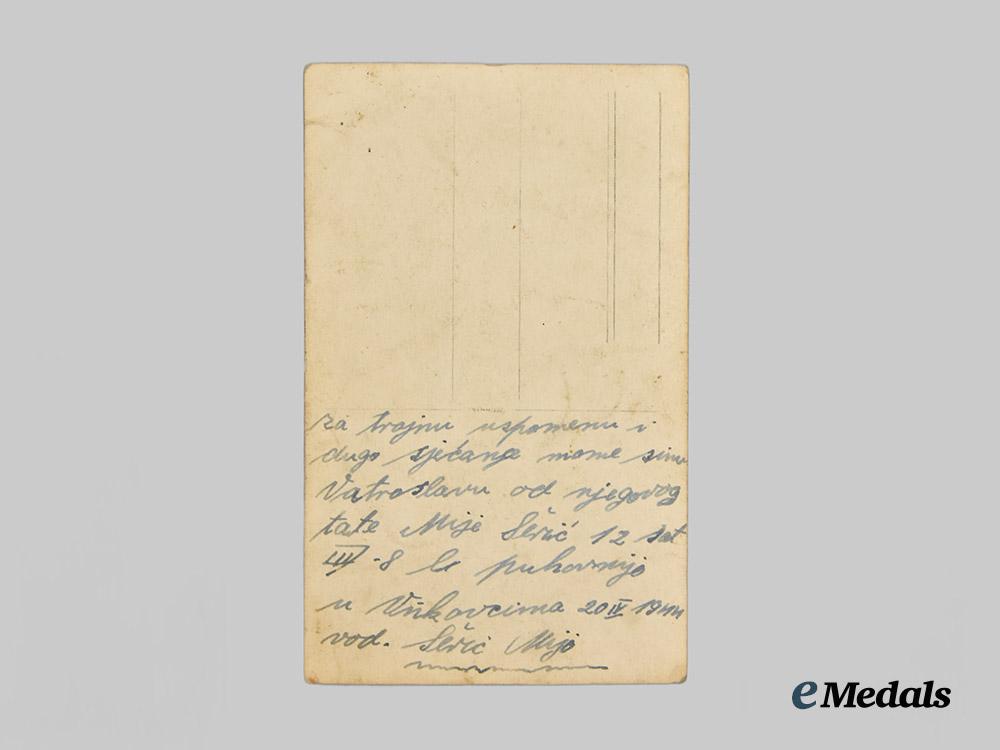 za trajnu uspomenu i
dugo sjećanje mome sinu
Vatroslavu od njegovog
tate Mije Šerić 12 sat
III - 8
u Vinkovcima 20 IV 1944
vod. Šerić Mijo
eMedals